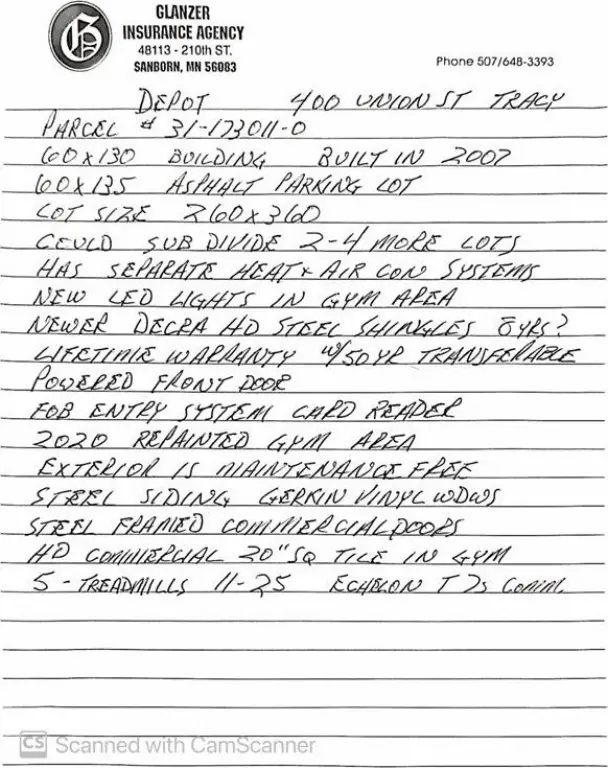 GLANZER
INSURANCE AGENCY
48113 - 210th ST.
SANBORN, MN 56083
Phone 507/648-3393
DEPOT 400 UNION ST TRACY
PARCEL # 31-173011-0
60 X 130 BUILDING BUILT IN 2007
60 X 135 ASPHALT PARKING LOT
LOT SIZE 260 X 360
COULD SUB DIVIDE 2-4 MORE LOTS
HAS SEPARATE HEAT & AIR CON SYSTEMS
NEW LED LIGHTS IN GYM AREA
NEWER DECRA HD STEEL SHINGLES 8 YRS?
LIFETIME WARRANTY W/50 YR TRANSFERABLE
POWERED FRONT DOOR
FOB ENTRY SYSTEM CARD READER
2020 REPAINTED GYM AREA
EXTERIOR IS MAINTENANCE FREE
STEEL SIDING GERKIN VINYL WDWS
STEEL FRAMED COMMERCIAL DOORS
HD COMMERCIAL 20" SQ TILE IN GYM
5 - TREADMILLS 11-25 ECHELON T 2s COMM.
CS Scanned with CamScanner